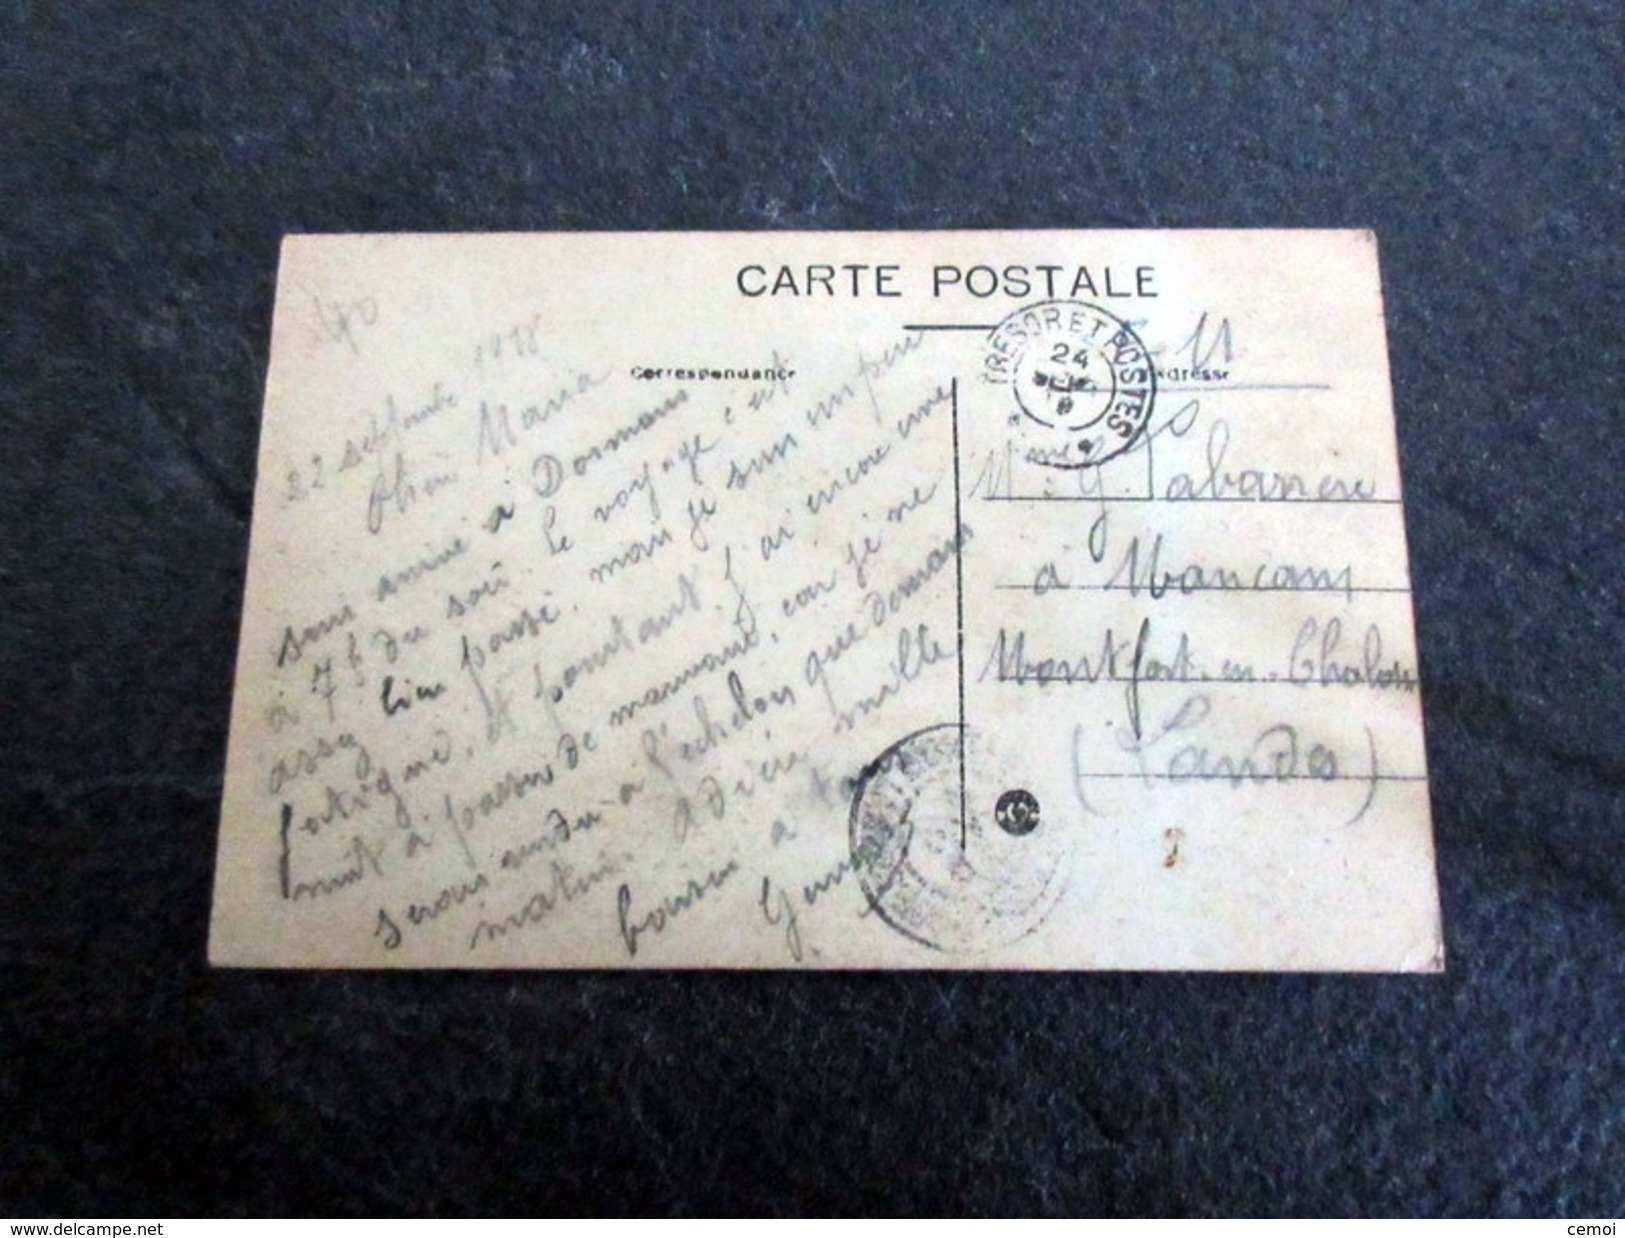 CARTE POSTALE
Correspondance
Adresse
TRESOR ET POSTES
24
22 septembre 1918
Maria
suis arrivé à Dormans
à 7h du soir. Le voyage c'est
assez bien passé. mais je suis un peu
fatigué. et pourtant j'ai encore une
nuit à passer de mauvaise, car je ne
serais rendu à l'echelon que demain
matin. mille
à
M. G. Labarrere
à
Montfort-en-Chalosse
(Landes)
www.delcampe.net
cemoi